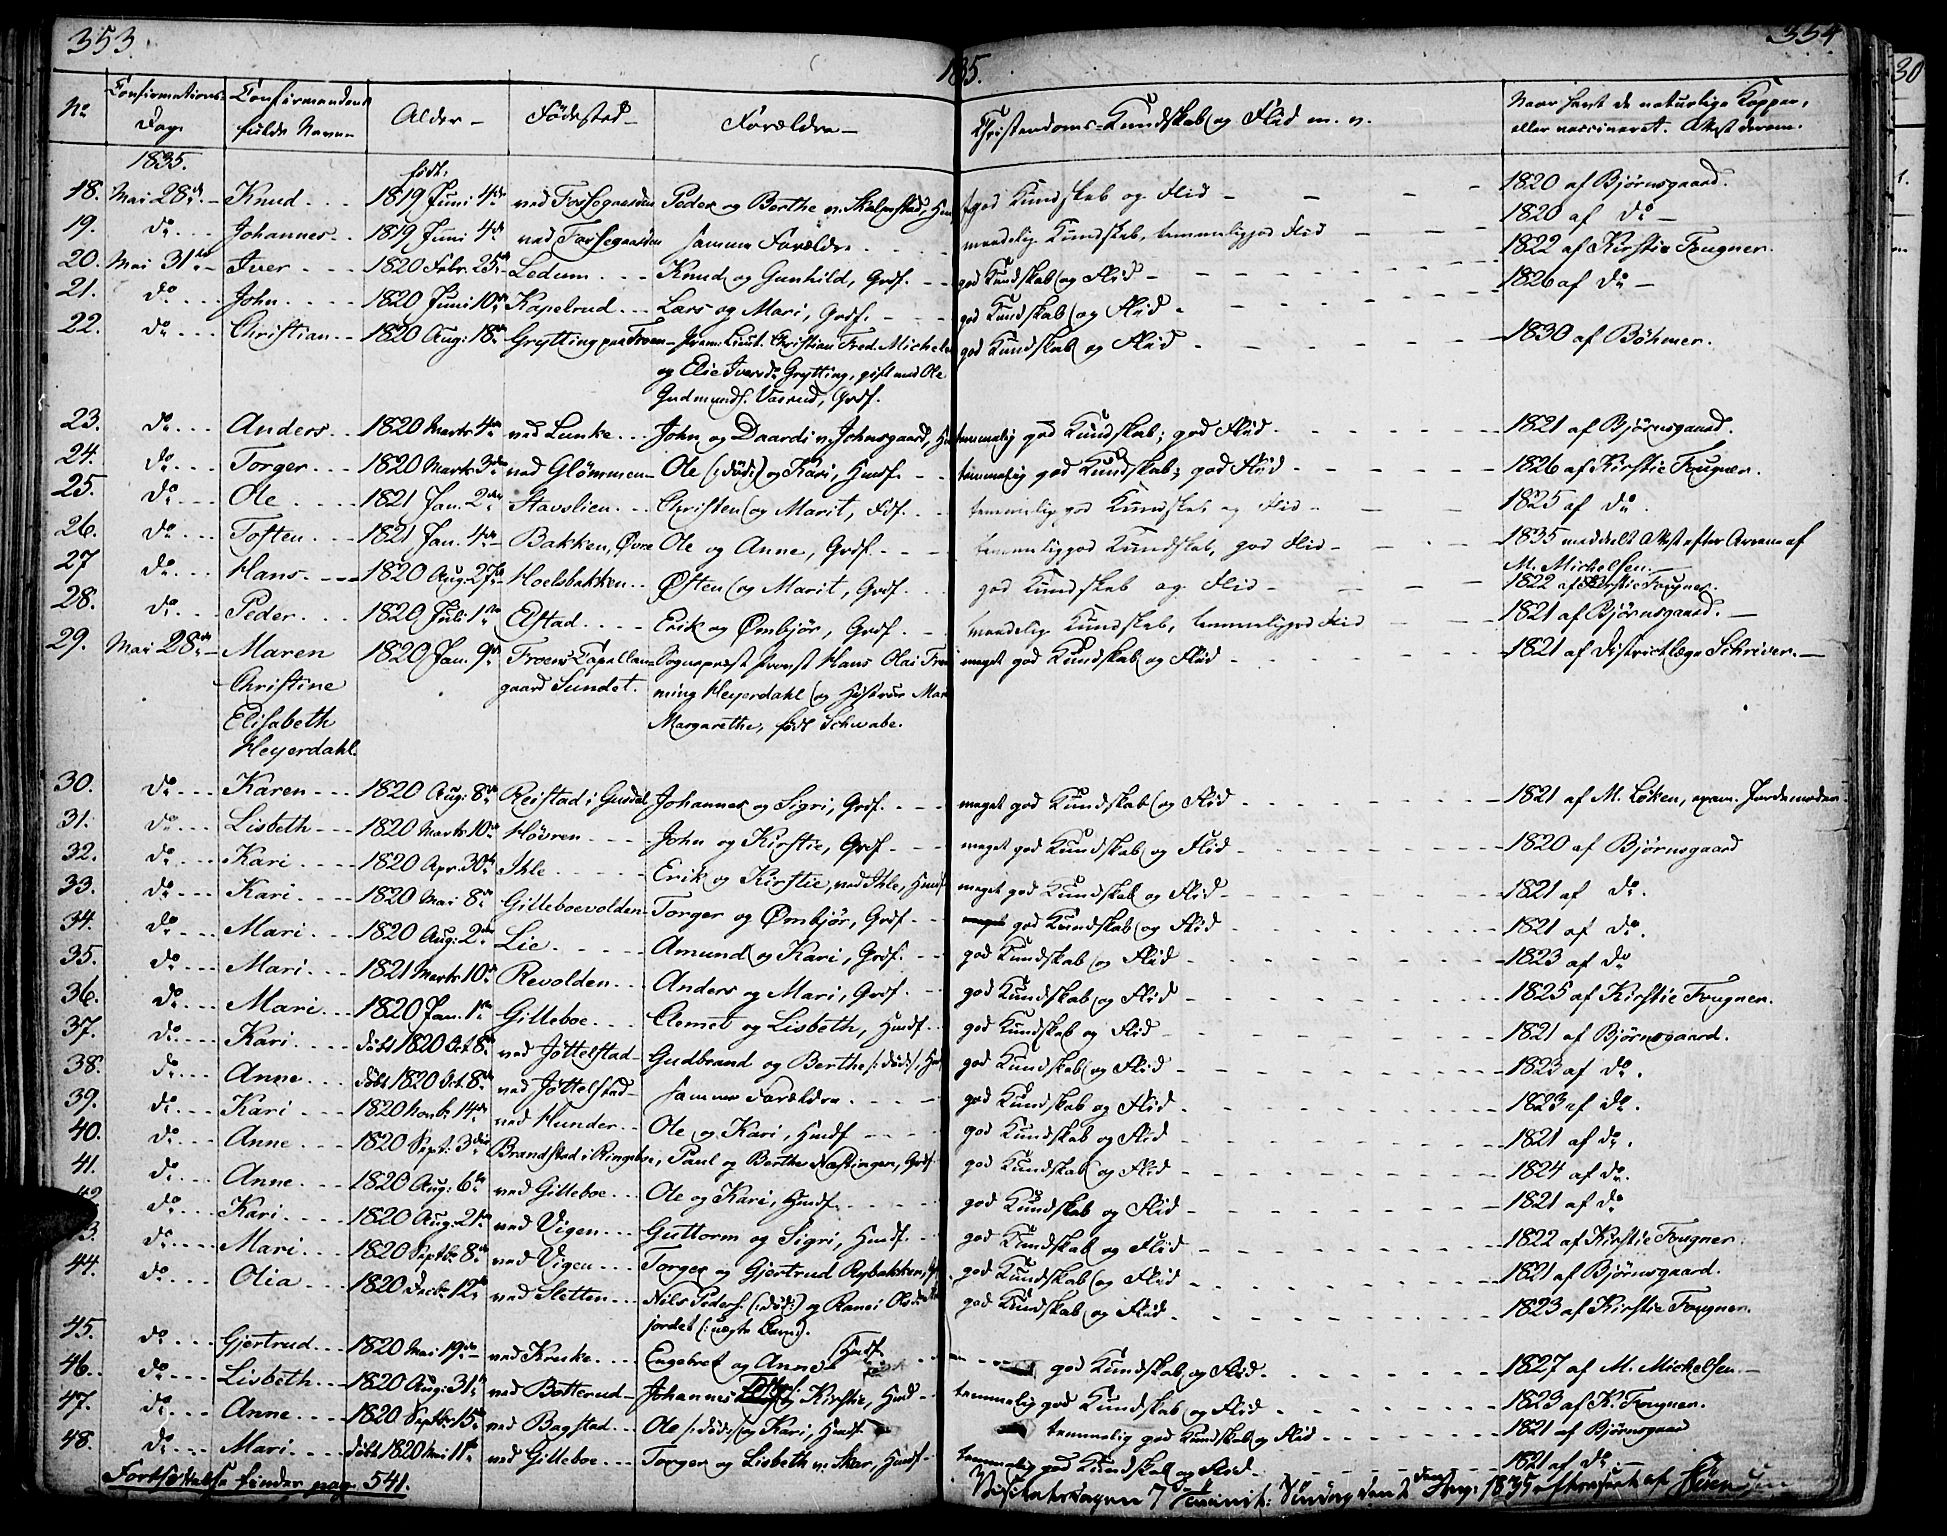 353.
354
1835.
No
Confirmations-Dag
Confirmandens fulde Navn
Alder
Fødested
Forældre
Christendoms-Kundskab og Flid m. v.
Naar havt de naturlige Kopper, eller vaccineret. Attest derom.
1835.
født
18. Mai 28de Knud 1819 Juni 4de ved Forsegaarden Peder og Berthe v. Skalmstad, god Kundskab og Flid 1820 af Bjørnsgaard.
19. do Johannes 1819 Juni 4de ved Forsegaarden samme Forældre maadelig Kundskab, temmeliggod Flid 1820 af do
20. Mai 31te Iver 1820 Febr. 25de Ledum Knud og Gunhild, Grdf. god Kundskab og Flid 1822 af Kirstie Fougner.
21. do John 1820 Juni 10de Kapelrud Lars og Mari, Grdf. god Kundskab og Flid 1826 af do
22. do Christian 1820 Aug: 18de Grytting paa Froen Prem: Lieut. Christian Fred. Michelet god Kundskab og Flid 1830 af Böhmer.
og Elie Iversdr Grytting, gift med Ole
Gudmunds. Vasrud, Grdf.
23. do Anders 1820 Marts 4de ved Lunke John og Daardi v. Johnsgaard, temmelig god Kundskab; god Flid 1821 af Bjørnsgaard.
24. do Torger 1820 Marts 3de ved Glömmen Ole (:død:) og Kari, Husf. temmelig god Kundskab; god Flid 1826 af Kirstie Fougner.
25. do Ole 1821 Jan. 2den Stavslien Christen og Marit, Fdf. temmelig god Kundskab og Flid 1825 af do
26. do Tosten 1821 Jan. 4de Bakken, Øvre Ole og Anne, Grdf. temmeliggod Kundskab, god Flid 1835 meddelt Attest efter Arrene af
M. Michelsen.
27 do Hans 1820 Aug: 27de Hoelsbakken Østen og Marit, Grdf. god Kundskab og Flid 1822 af Kirstie Fougner
28. do Peder 1820 Juli 1ste Elstad Erik og Ømbjør, Grdf. maadelig Kundskab, temmeliggod Flid 1821 af Bjørnsgaard.
29. Mai 28de Maren 1820 Jan. 9de Froens Capellan- Sognepræst Provst Hans Olai Fre meget god Kundskab og Flid 1821 af Districtlæge Schriver.
Christine gaard Sundet. ming Heyerdahl og Hustrue Mar
Elisabeth Margarethe, født Schwabe.
Heyerdahl.
30. do Karen 1820 Aug: 8de Reistad i Gusdal Johannes og Sigri, Grdf. meget god Kundskab og Flid 1821 af M. Löken, exam. Jordemoder
31. do Lisbeth 1820 Marts 10de Hövren John og Kirstie, Grdf. meget god Kundskab og Flid 1820 af Bjørnsgaard
32. do Kari 1820 Apr. 30te Ihle Erik og Kirstie, ved Ihle, Husf. meget god Kundskab og Flid 1821 af do
33. do Kari 1820 Mai 8de Gilleboevolden Torger og Ømbjør, Grdf. god Kundskab og Flid 1821 af do
34. do Mari 1820 Aug: 2den Lie Amund og Kari, Grdf. god Kundskab og Flid 1823 af do
35. do Mari 1821 Marts 10de Revolden Anders og Mari, Grdf. god Kundskab og Flid 1825 af Kirstie Fougner.
36. do Mari 1820 Jan. 1ste Gilleboe Clemet og Lisbeth, Husf. god Kundskab og Flid 1821 af Bjørnsgaard.
37. do Kari døbt 1820 Oct 8de ved Jøttelstad Gudbrand og Berthe (:død:), god Kundskab og Flid 1823 af do
38. do Anne døbt 1820 Oct. 8de ved Jøttelstad samme Forældre god Kundskab og Flid 1823 af do
39. do Kari 1820 Novbr. 14de ved Hunder Ole og Kari, Husf god Kundskab og Flid 1821 af do
40. do Anne 1820 Sept: 3die Brandstad i Ringeboe, Paul og Berthe Næstingen, Grdf god Kundskab og Flid 1824 af do
41. do Anne 1820 Aug: 6te ved Gilleboe Ole og Kari, Husf. god Kundskab og Flid 1821 af do
42 do Kari 1820 Aug: 21de ved Vigen Guttorm og Sigri, Husf. god Kundskab og Flid 1822 af Kirstie Fougner.
43. do Mari 1820 Septbr. 8de ved Vigen Torger og Gjertrud Rybakken, god Kundskab og Flid 1821 af Bjørnsgaard.
44. do Olia 1820 Decbr. 12te ved Sletten Nils Peders. (:død:) og Ranei Olsdr god Kundskab og Flid 1823 af Kirstie Fougner.
jordet (:uægte Barn:).
45. do Gjertrud 1820 Mai 19de ved Kruke Engebret og Anne Husf. god Kundskab og Flid 1827 af M. Mickelsen.
46. do Lisbeth 1820 Aug: 31te ved Batterud Johannes og Kirstie, Husf temmelig god Kundskab og Flid 1823 af K. Fougner.
47. do Anne 1820 Septbr. 15de ved Bagstad Ole (:død:) og Kari, Husf temmelig god Kundskab og Flid 1821 af Bjørnsgaard
48. do Mari døbt 1820 Mai 11te ved Gilleboe Torger og Lisbeth v. Skar, Husf. temmelig god Kundskab og Flid 1821 af do
Fortsættelse findes pag. 541.
Visitatsdagen 7 Trinit: Søndag den 2den Aug: 1835 efterseet af